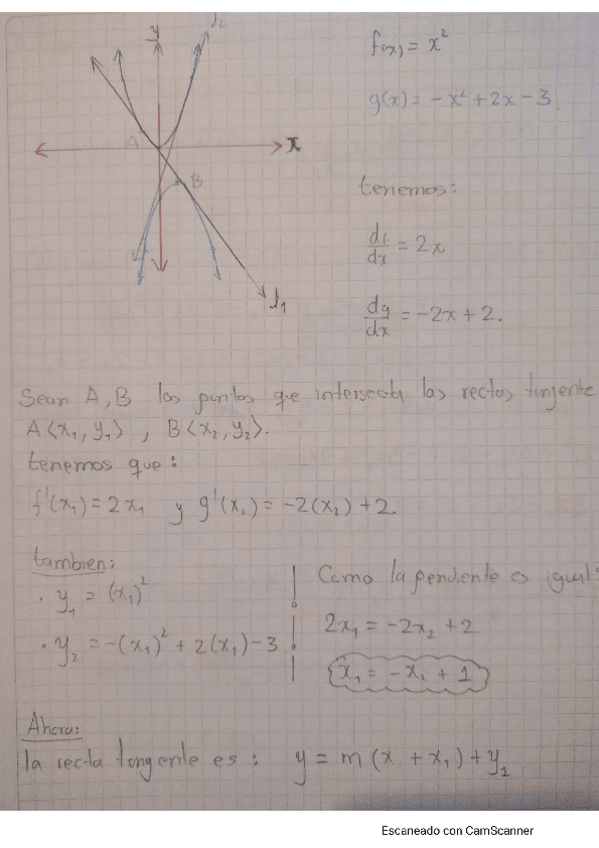 y
l₂
f(x) = x²
g(x) = -x² + 2x - 3
A
x
B
tenemos:
df/dx = 2x
l₁
dg/dx = -2x + 2.
Sean A, B los puntos que intersecta las rectas tangente
A(x₁, y₁) , B(x₂, y₂).
tenemos que:
f'(x₁) = 2x₁ y g'(x₂) = -2(x₂) + 2.
tambien:
• y₁ = (x₁)²
• y₂ = -(x₁)² + 2(x₁) - 3
Como la pendiente es igual:
2x₁ = -2x₂ + 2
x₁ = -x₂ + 1
Ahora:
la recta tangente es: y = m(x + x₁) + y₁
Escaneado con CamScanner